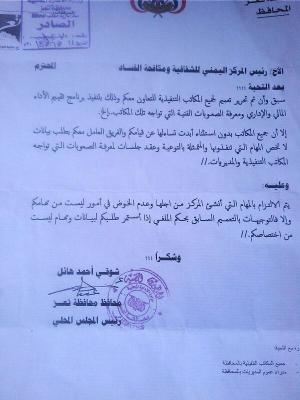 المحافظ
الصادر
الأخ/ رئيس المركز اليمني للشفافية ومكافحة الفساد المحترم
بعد التحية ،،،،
سبق وأن تم تحرير تعميم لجميع المكاتب التنفيذية للتعاون معكم وذلك بتنفيذ برنامج تقييم الأداء
المالي والإداري ومعرفة الصعوبات الفنية التي تواجه تلك المكاتب ..الخ.
إلا أن جميع المكاتب بدون استثناء أبدت تساءلها عن قيامكم والفريق العامل معكم بطلب بيانات
لا تخص المهام التي تنفذونها والمتمثلة بالتوعية وعقد جلسات لمعرفة الصعوبات التي تواجه
المكاتب التنفيذية والمديريات .//
وعليــه :
يتم الالتزام بالمهام التي أنشئ المركز من اجلها وعدم الخوض في أمور ليست من مهامكم
وإلا فالتوجيهات بالتعميم السابق بحكم الملغي إذا أستمر طلبكم لبيانات ومهام ليست
من اختصاصكم .//
وشكــراً ،،،
شوقي أحمد هائل
محافظ محافظة تعـز
رئيس المجلس المحلي
جميع المكاتب التنفيذية بالمحافظة
مدراء عموم المديريات بالمحافظة